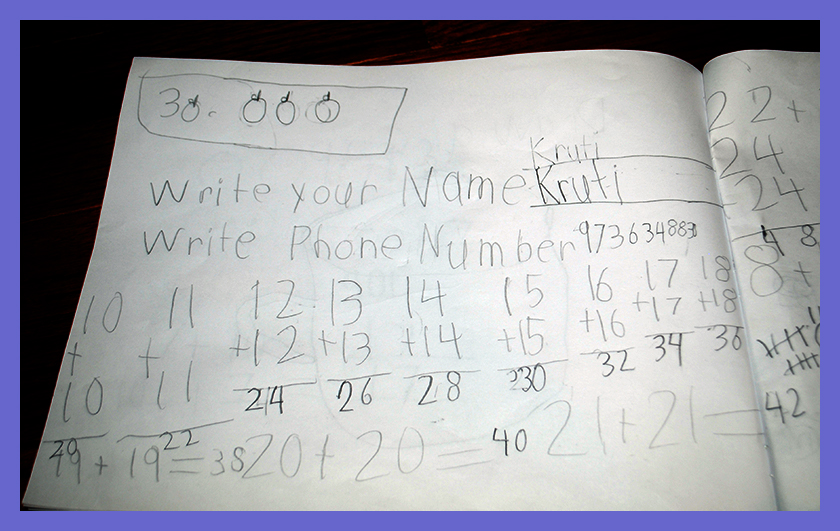 30.
Kruti
Write your Name Kruti
Write Phone Number 9736348830
10 11 12 13 14 15 16 17 18
+ + +12 +13 +14 +15 +16 +17 +18
10 11 24 26 28 30 32 34 36
20 22
19 + 19 = 38 20 + 20 = 40 21 + 21 = 42
22 +
24
24
48
8 +